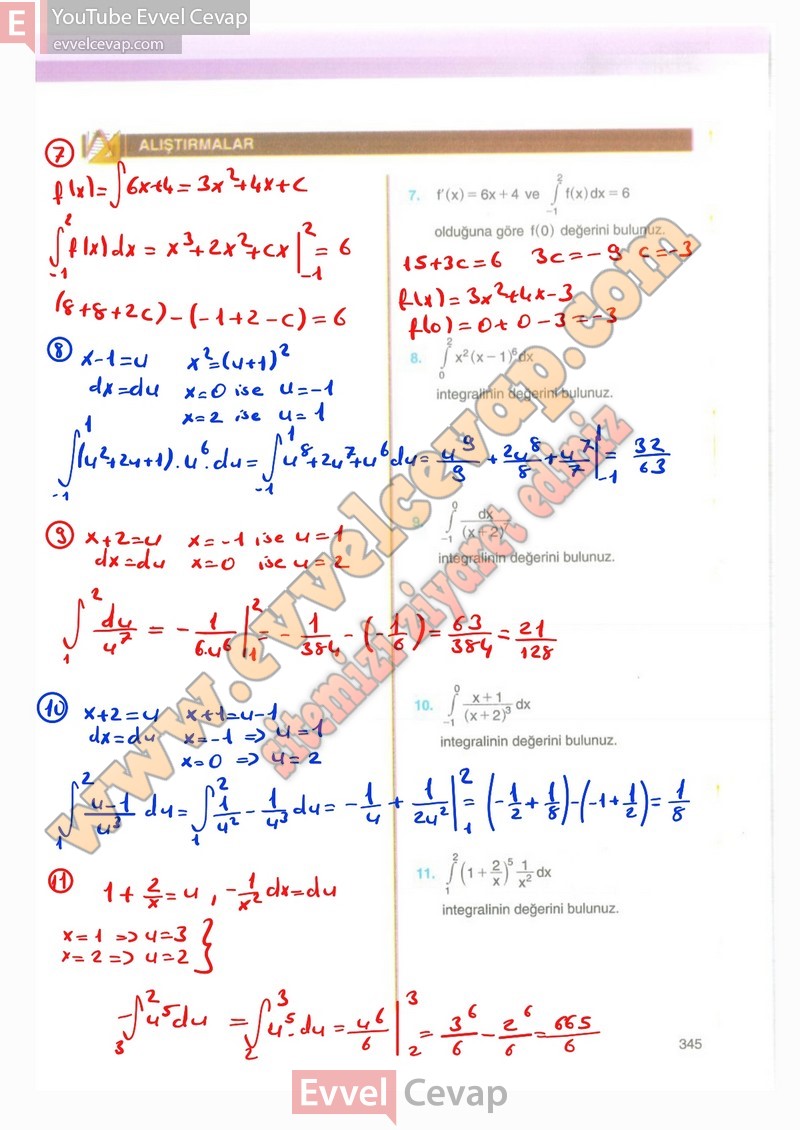 E YouTube Evvel Cevap
evvelcevap.com
ALIŞTIRMALAR
7
f(x)=∫6x+4=3x²+4x+c
∫₋₁² f(x)dx = x³+2x²+cx|₋₁² = 6
(8+8+2c)-(-1+2-c)=6
7. f'(x) = 6x + 4 ve ∫₋₁² f(x) dx = 6
olduğuna göre f(0) değerini bulunuz.
15+3c=6 3c=-9 c=-3
f(x)=3x²+4x-3
f(0)=0+0-3=-3
8
x-1=u x²=(u+1)²
dx=du x=0 ise u=-1
x=2 ise u=1
8. ∫₀² x²(x – 1)⁶dx
integralinin değerini bulunuz.
∫₋₁¹ (u²+2u+1).u⁶.du = ∫₋₁¹ u⁸+2u⁷+u⁶ du = u⁹/9 + 2u⁸/8 + u⁷/7 |₋₁¹ = 32/63
9
x+2=u x=-1 ise u=1
dx=du x=0 ise u=2
9. ∫₋₁⁰ dx/(x+2)⁷
integralinin değerini bulunuz.
∫₁² du/u⁷ = -1/6.u⁶ |₁² = -1/384 - (-1/6) = 63/384 = 21/128
10
x+2=u x+1=u-1
dx=du x=-1 => u=1
x=0 => u=2
10. ∫₋₁⁰ (x+1)/(x+2)³ dx
integralinin değerini bulunuz.
∫₁² (u-1)/u³ du = ∫₁² 1/u² - 1/u³ du = -1/u + 1/2u² |₁² = (-1/2+1/8)-(-1+1/2) = 1/8
11
1+2/x=u, -1/x² dx=du
x=1 => u=3 }
x=2 => u=2
11. ∫₁² (1+2/x)⁵ 1/x² dx
integralinin değerini bulunuz.
-∫₃² u⁵du = ∫₂³ u⁵.du = u⁶/6 |₂³ = 3⁶/6 - 2⁶/6 = 665/6
345
www.evvelcevap.com
sitemizi ziyaret ediniz
Evvel Cevap